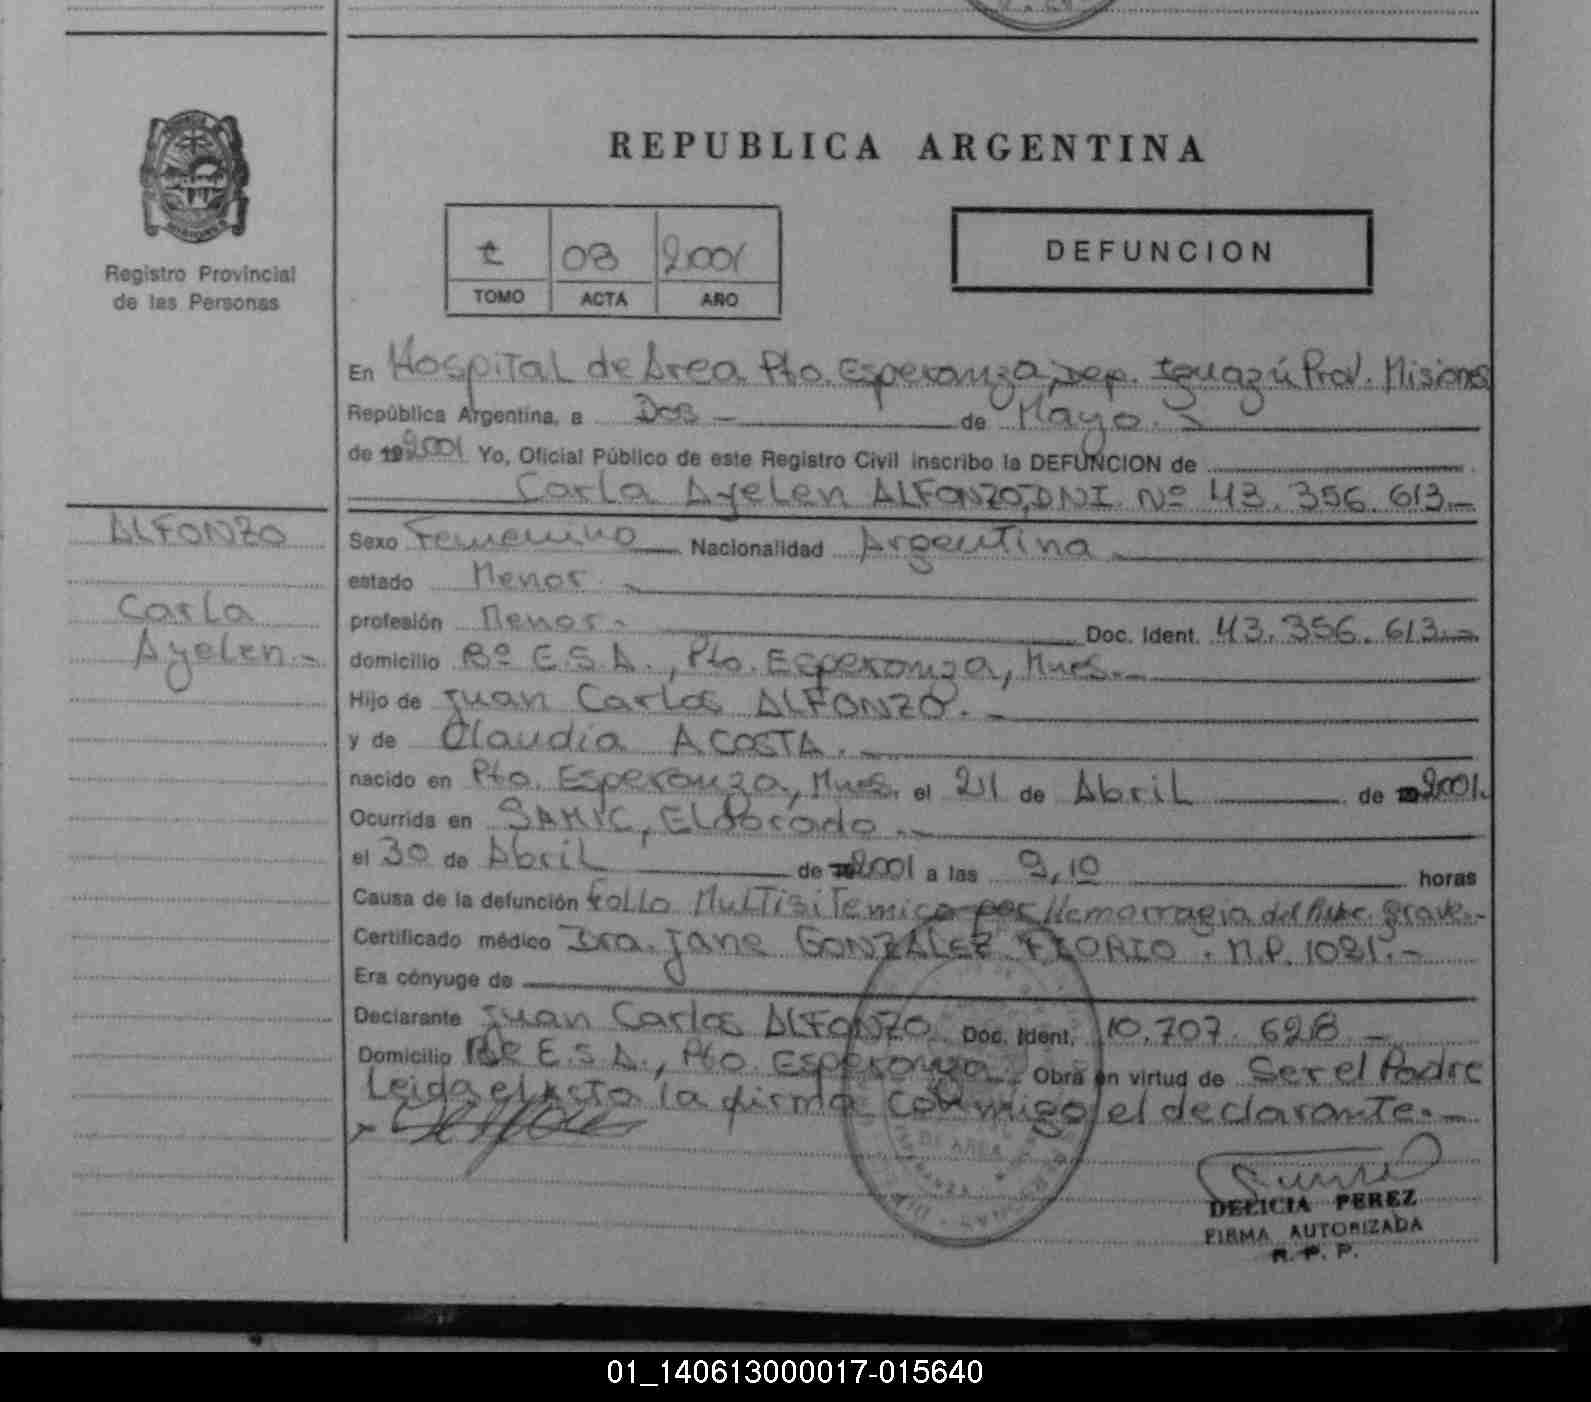 REPUBLICA ARGENTINA
Registro Provincial
de las Personas
08 2001
TOMO ACTA AÑO
DEFUNCION
En Hospital de Area Pto. Esperanza, Dep. Iguazú Prov. Misiones
República Argentina, a Dos - de Mayo.
de 19 2001 Yo, Oficial Público de este Registro Civil inscribo la DEFUNCION de
Carla Ayelen ALFONZO, DNI Nº 43.356.613.-
ALFONZO
Carla
Ayelen.-
Sexo Femenino Nacionalidad Argentina
estado Menor.
profesión Menor.- Doc. Ident. 43.356.613.-
domicilio Bº E.S.A., Pto. Esperanza, Mnes.-
Hijo de Juan Carlos ALFONZO.-
y de Claudia ACOSTA.
nacido en Pto. Esperanza, Mnes. el 21 de Abril de 2001.
Ocurrida en SAMIC, ElDorado.-
el 30 de Abril de 2001 a las 9,10 horas
Causa de la defunción Fallo Multisitemico por Hemorragia del grave.-
Certificado médico Dra. Jane GONZALEZ FLORIO. M.P. 1021.-
Era cónyuge de
Declarante Juan Carlos ALFONZO Doc. Ident. 10.707.628 -
Domicilio Bº E.S.A., Pto. Esperanza Obra en virtud de Ser el Padre
Leida el acta la firma conmigo el declarante.-
DELICIA PEREZ
FIRMA AUTORIZADA
R. P. P.
01_140613000017-015640